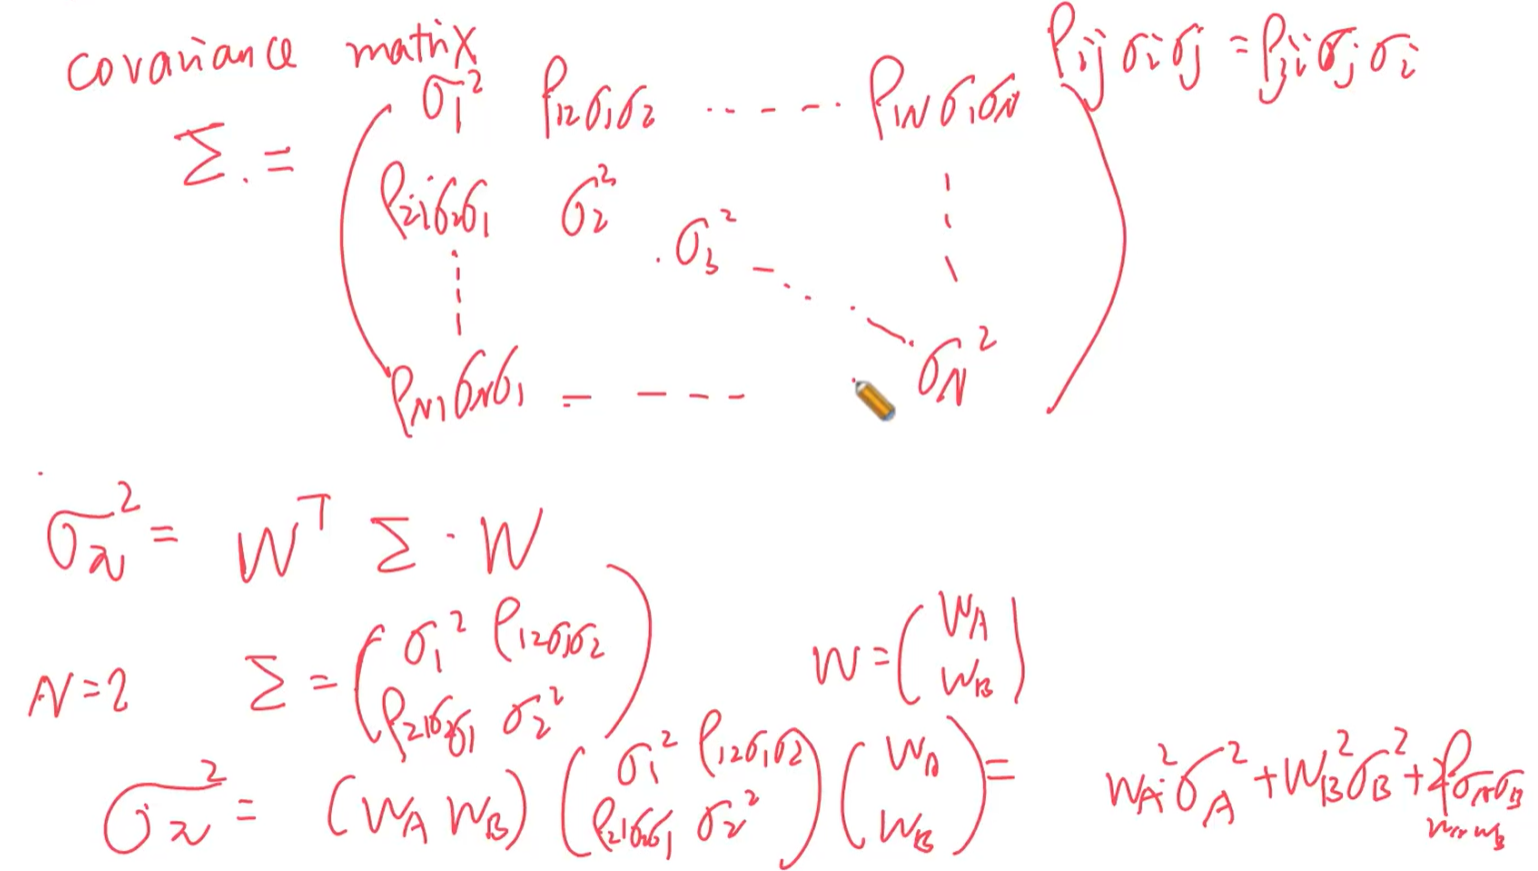 covariance matrix
ρijσiσj = ρjiσjσi
Σ. = ( σ1² ρ12σ1σ2 ...... ρ1Nσ1σN
ρ21σ2σ1 σ2²
. σ3² - ....
ρN1σNσ1 - - - - σN² )
σπ² = W^T Σ · W
N=2 Σ = ( σ1² ρ12σ1σ2
ρ21σ2σ1 σ2² )
W = ( WA
WB )
σπ² = (WA WB) ( σ1² ρ12σ1σ2
ρ21σ2σ1 σ2² ) ( WA
WB ) = WA²σA² + WB²σB² + 2ρσAσB
WA WB